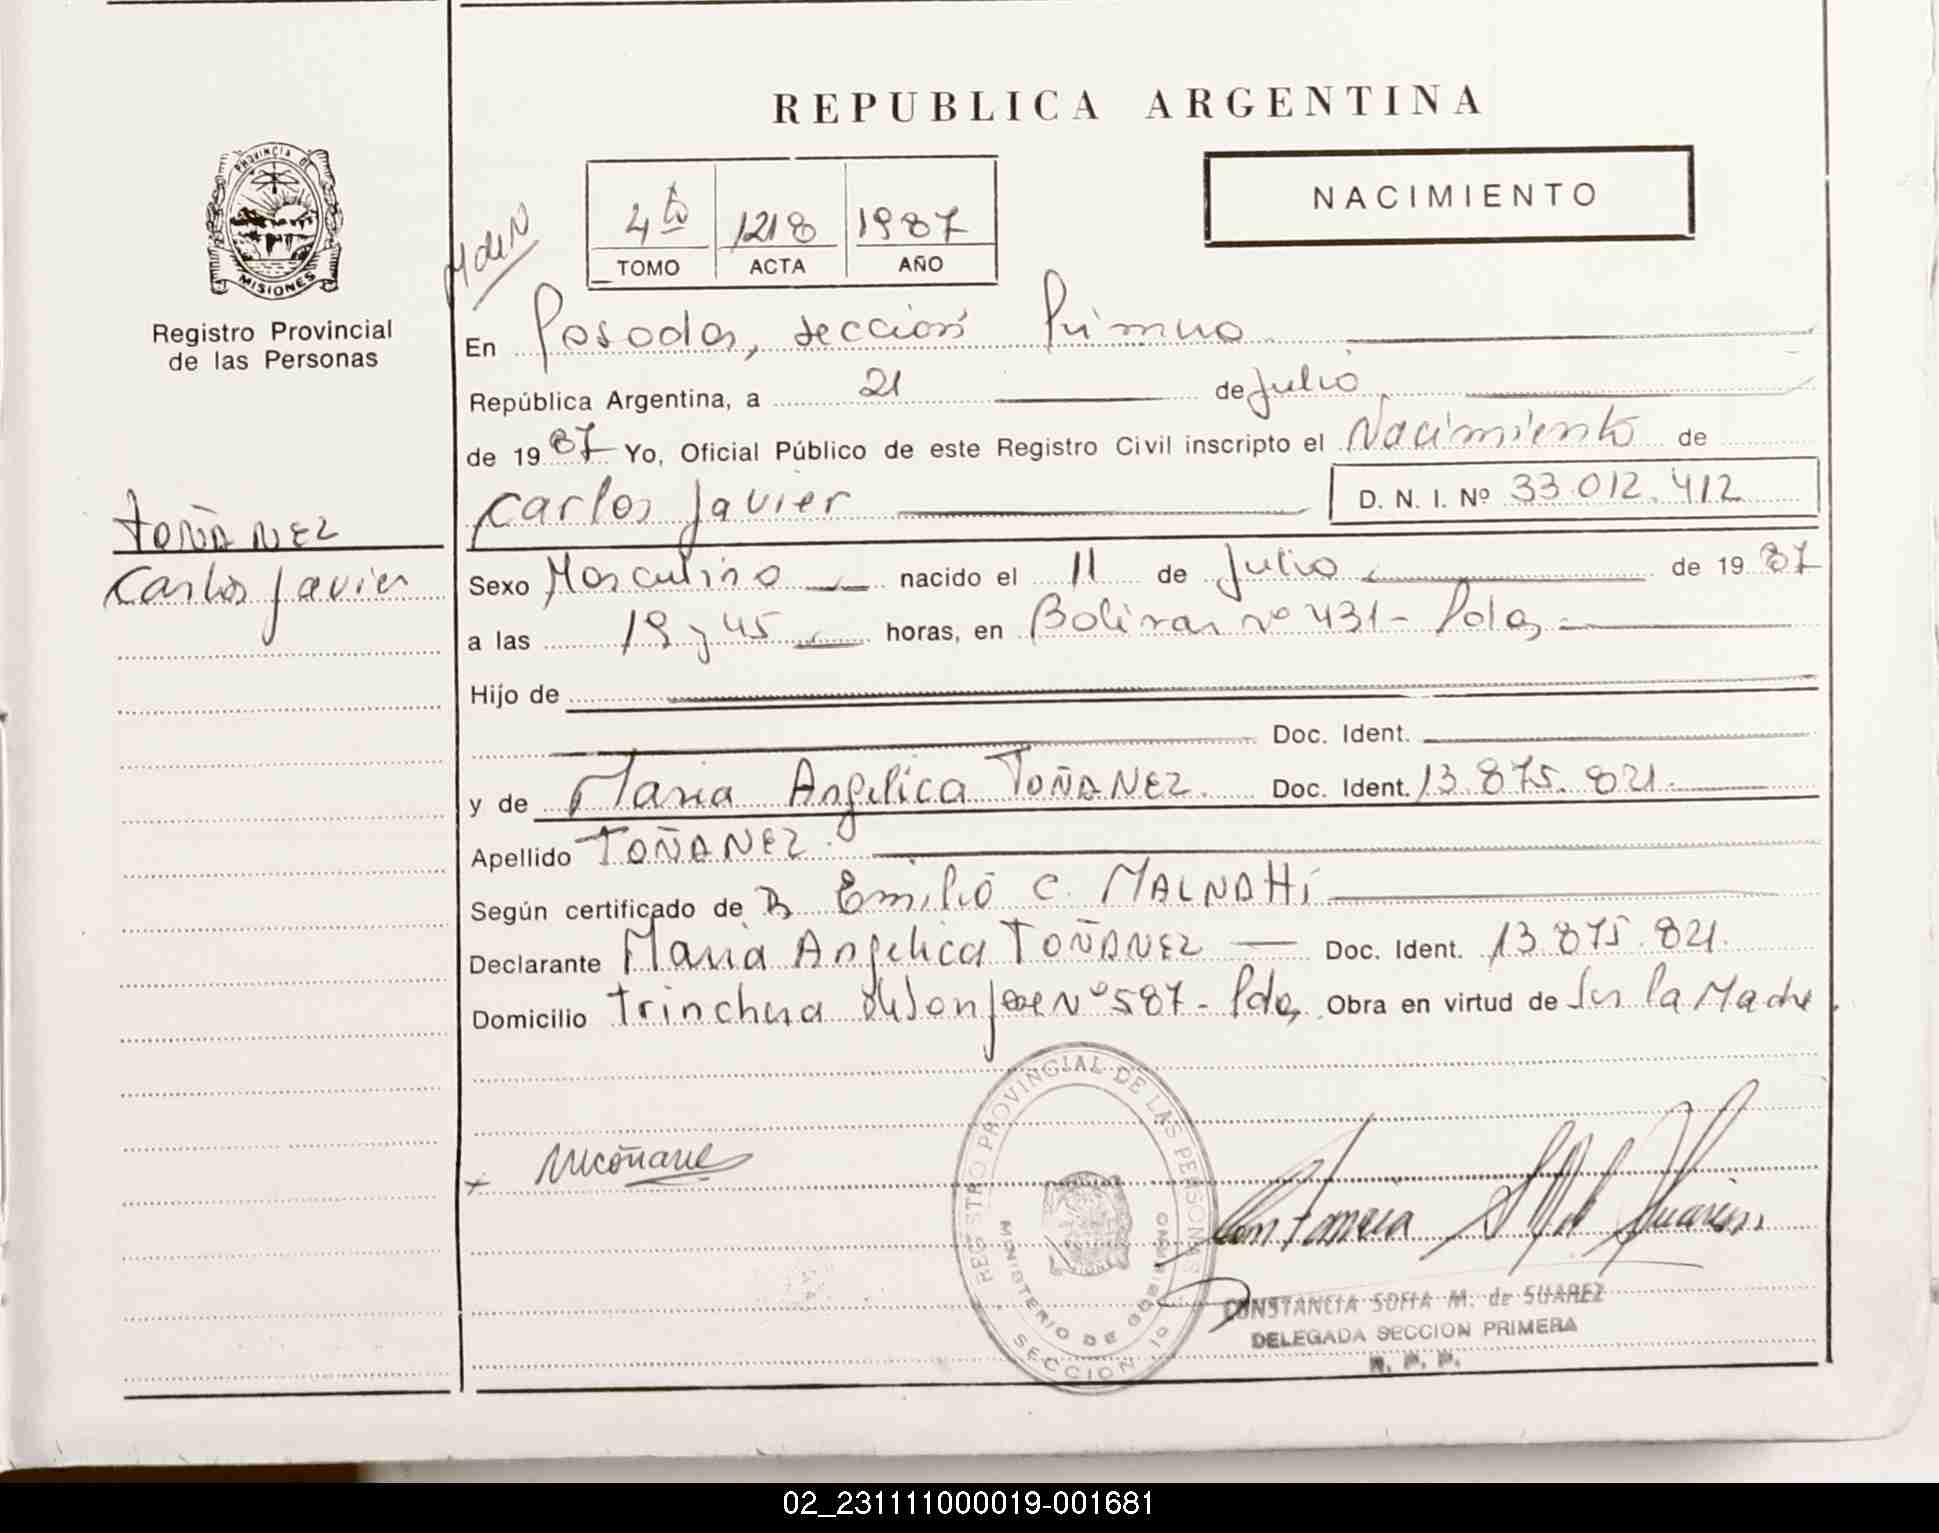 REPUBLICA ARGENTINA
PROVINCIA DE
MISIONES
Registro Provincial
de las Personas
4to 1218 1987
TOMO ACTA AÑO
NACIMIENTO
En Posadas, sección Primera
República Argentina, a 21 de Julio
de 1987 Yo, Oficial Público de este Registro Civil inscripto el Nacimiento de
Carlos Javier D. N. I. Nº 33.012.412
TOÑANEZ
Carlos Javier
Sexo Masculino nacido el 11 de Julio de 1987
a las 19 y 45 horas, en Bolivar nº 431 - Pdas
Hijo de
Doc. Ident.
y de Maria Angelica TOÑANEZ. Doc. Ident. 13.875.821.
Apellido TOÑANEZ.
Según certificado de Dr Emilio C. MALNATTi
Declarante Maria Angelica TOÑANEZ Doc. Ident. 13.875.821.
Domicilio Trinchera de San Jose Nº 587 - Pdas Obra en virtud de Ser la Madre.
REGISTRO PROVINCIAL DE LAS PERSONAS
MINISTERIO DE GOBIERNO
SECCION 1º
CONSTANCIA SOFIA M. de SUAREZ
DELEGADA SECCION PRIMERA
R. P. P.
02_231111000019-001681